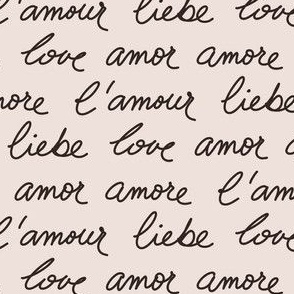 l'amour liebe love
love amor amore
amore l'amour liebe
liebe love amor
amor amore l'am
l'amour liebe love
love amor amore